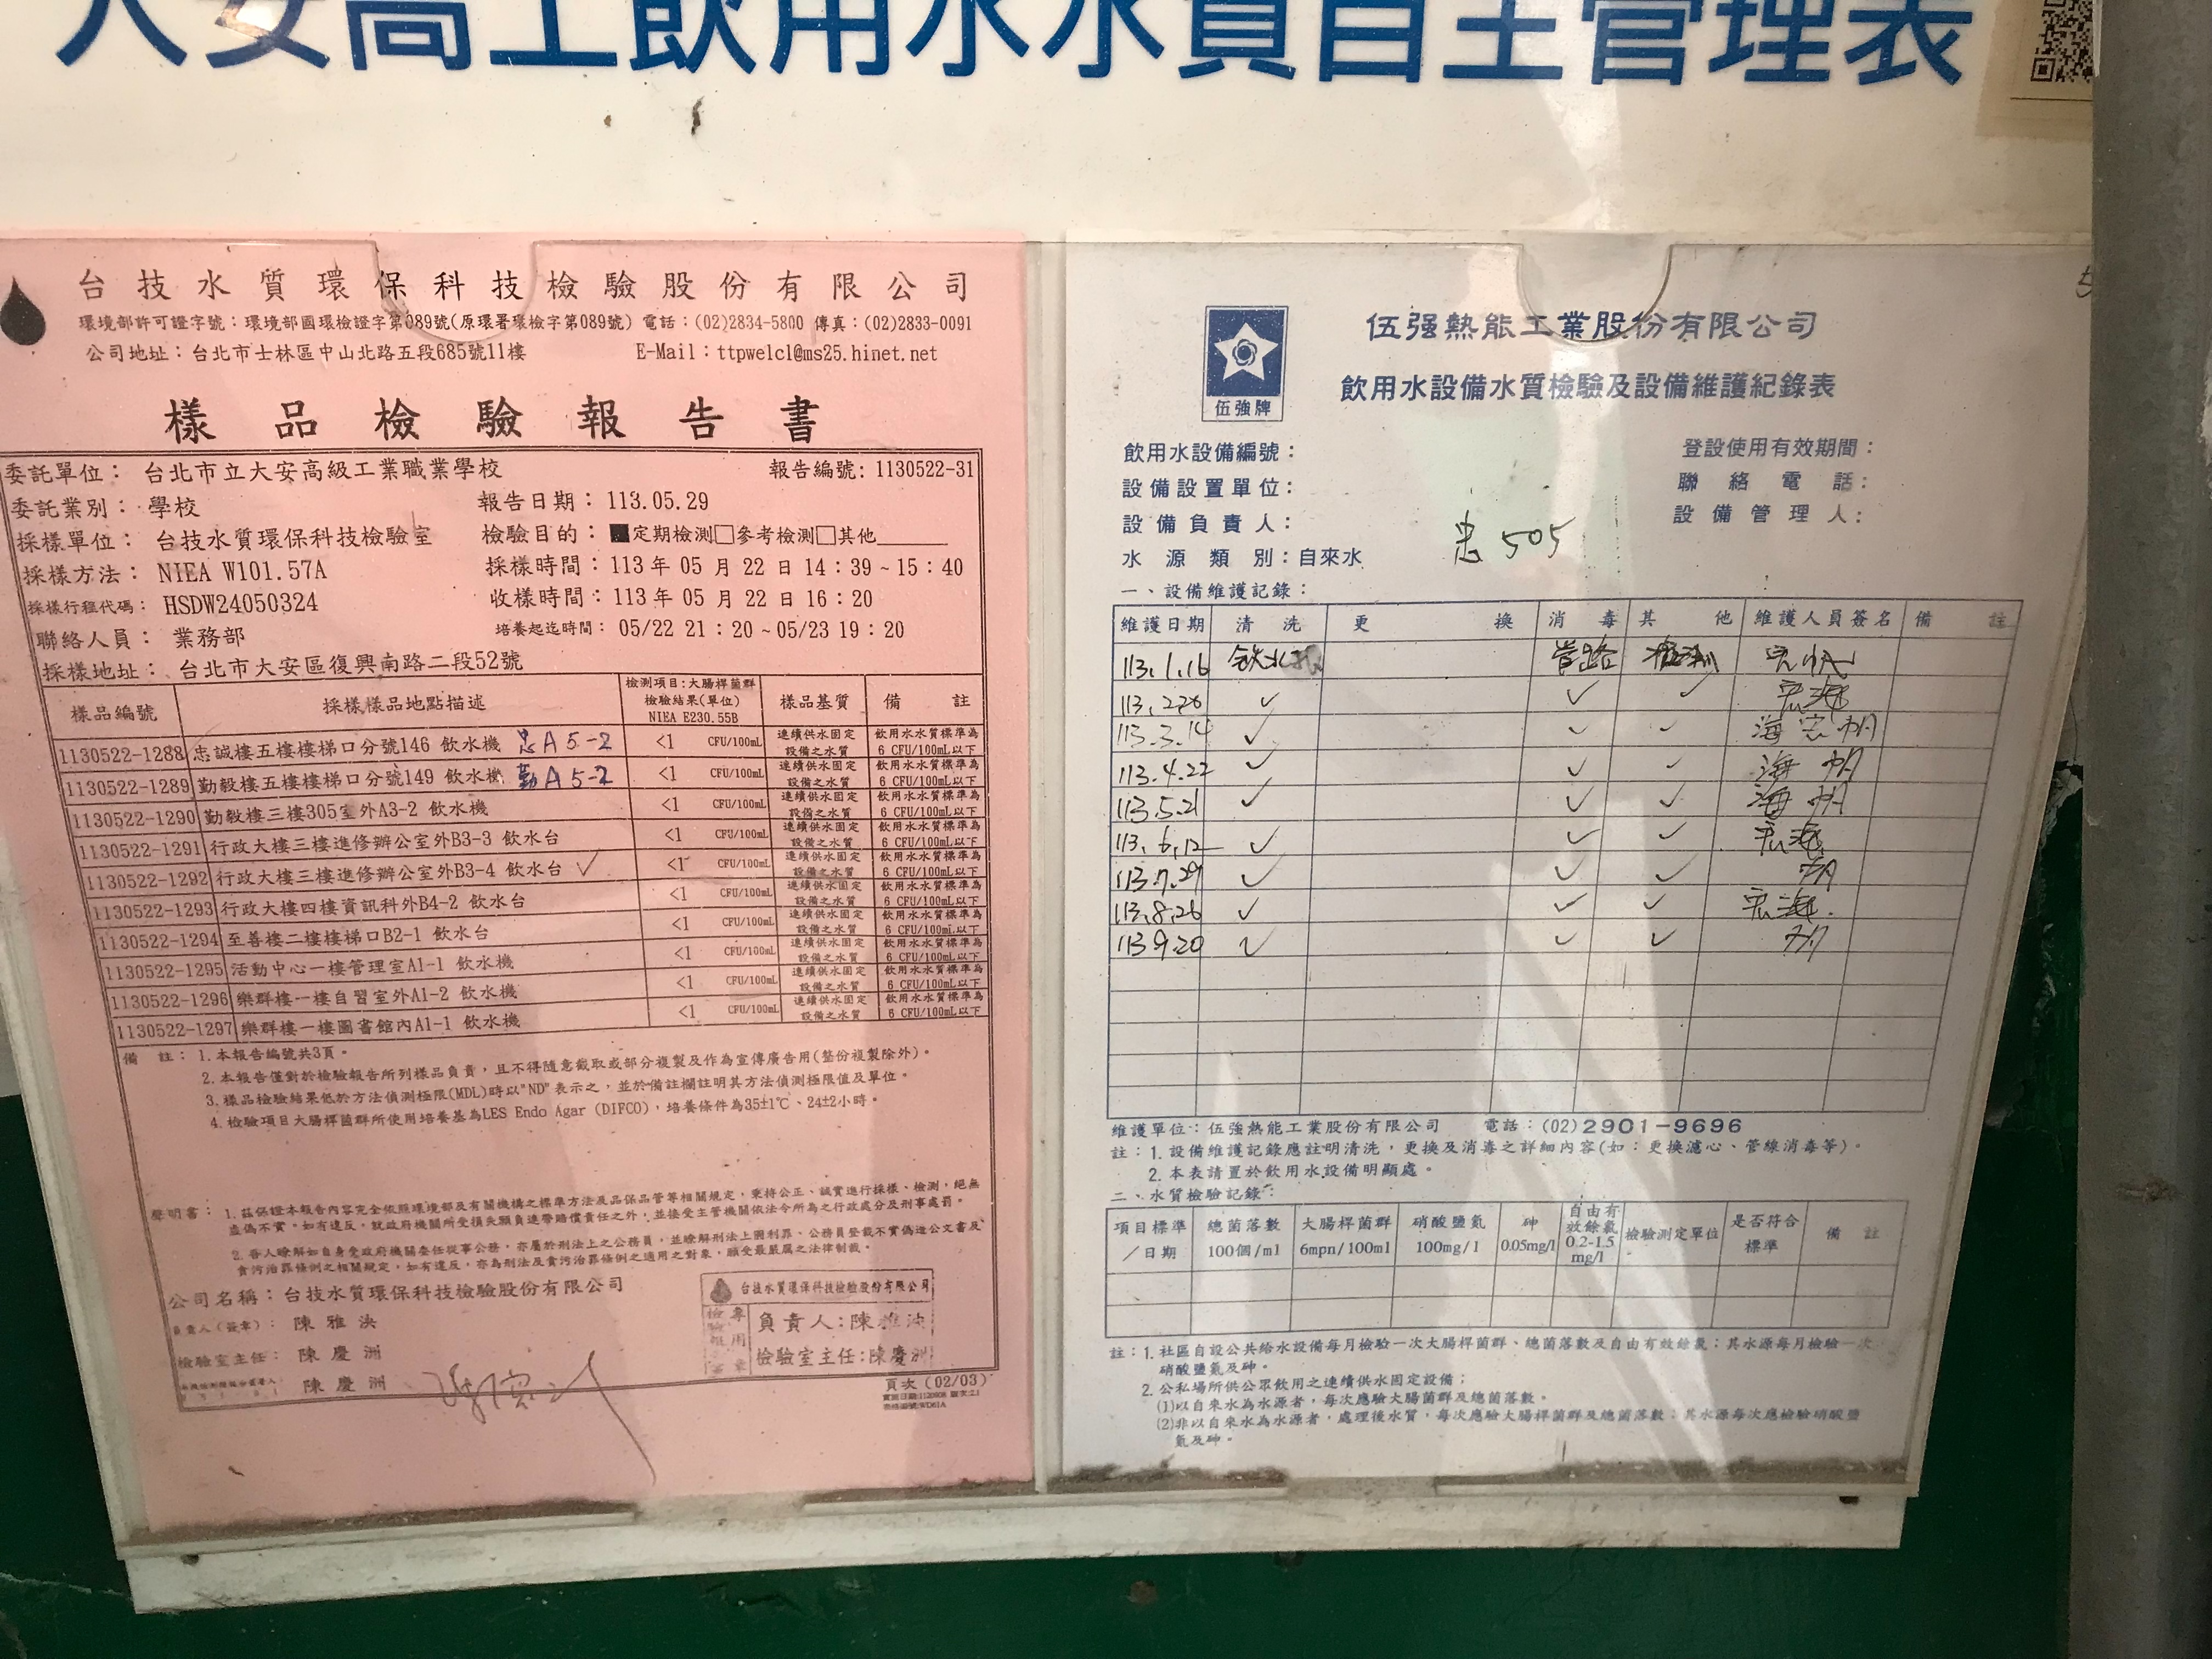 大安高工飲用水水質自主管理表
台技水質環保科技檢驗股份有限公司
環境部許可證字號：環境部國環檢證字第089號(原環署環檢字第089號) 電話：(02)2834-5800 傳真：(02)2833-0091
公司地址：台北市士林區中山北路五段685號11樓 E-Mail：ttpwelcl@ms25.hinet.net
樣品檢驗報告書
委託單位： 台北市立大安高級工業職業學校 報告編號: 1130522-31
委託業別： 學校 報告日期：113.05.29
採樣單位： 台技水質環保科技檢驗室 檢驗目的：■定期檢測□參考檢測□其他
採樣方法： NIEA W101.57A 採樣時間：113 年 05 月 22 日 14：39 ~ 15：40
採樣行程代碼： HSDW24050324 收樣時間：113 年 05 月 22 日 16：20
聯絡人員： 業務部 培養起迄時間：05/22 21：20 ~ 05/23 19：20
採樣地址： 台北市大安區復興南路二段52號
樣品編號 採樣樣品地點描述 檢測項目:大腸桿菌群 檢驗結果(單位) NIEA E230.55B 樣品基質 備註
1130522-1288 忠誠樓五樓樓梯口分號146 飲水機 忠A5-2 <1 CFU/100mL 連續供水固定設備之水質 飲用水水質標準為6 CFU/100mL以下
1130522-1289 勤毅樓五樓樓梯口分號149 飲水機 勤A5-2 <1 CFU/100mL 連續供水固定設備之水質 飲用水水質標準為6 CFU/100mL以下
1130522-1290 勤毅樓三樓305室外A3-2 飲水機 <1 CFU/100mL 連續供水固定設備之水質 飲用水水質標準為6 CFU/100mL以下
1130522-1291 行政大樓三樓進修辦公室外B3-3 飲水台 <1 CFU/100mL 連續供水固定設備之水質 飲用水水質標準為6 CFU/100mL以下
1130522-1292 行政大樓三樓進修辦公室外B3-4 飲水台 ✓ <1 CFU/100mL 連續供水固定設備之水質 飲用水水質標準為6 CFU/100mL以下
1130522-1293 行政大樓四樓資訊科外B4-2 飲水台 <1 CFU/100mL 連續供水固定設備之水質 飲用水水質標準為6 CFU/100mL以下
1130522-1294 至善樓二樓樓梯口B2-1 飲水台 <1 CFU/100mL 連續供水固定設備之水質 飲用水水質標準為6 CFU/100mL以下
1130522-1295 活動中心一樓管理室A1-1 飲水機 <1 CFU/100mL 連續供水固定設備之水質 飲用水水質標準為6 CFU/100mL以下
1130522-1296 樂群樓一樓自習室外A1-2 飲水機 <1 CFU/100mL 連續供水固定設備之水質 飲用水水質標準為6 CFU/100mL以下
1130522-1297 樂群樓一樓圖書館內A1-1 飲水機 <1 CFU/100mL 連續供水固定設備之水質 飲用水水質標準為6 CFU/100mL以下
備 註：1.本報告編號共3頁。
2.本報告僅對於檢驗報告所列樣品負責，且不得隨意截取或部分複製及作為宣傳廣告用(整份複製除外)。
3.樣品檢驗結果低於方法偵測極限(MDL)時以"ND"表示之，並於備註欄註明其方法偵測極限值及單位。
4.檢驗項目大腸桿菌群所使用培養基為LES Endo Agar (DIFCO)，培養條件為35±1℃、24±2小時。
聲明書：1.茲保證本報告內容完全依照環境部及有關機構之標準方法及品保品管等相關規定，秉持公正、誠實進行採樣、檢測，絕無
虛偽不實。如有違反，就政府機關所受損失願負連帶賠償責任之外，並接受主管機關依法令所為之行政處分及刑事處罰。
2.吾人瞭解如自身受政府機關委任從事公務，亦屬於刑法上之公務員，並瞭解刑法上圖利罪、公務員登載不實偽造公文書及
貪污治罪條例之相關規定，如有違反，亦為刑法及貪污治罪條例之適用之對象，願受最嚴厲之法律制裁。
公司名稱：台技水質環保科技檢驗股份有限公司
負責人(簽章)： 陳雅泱
檢驗室主任： 陳慶洲
陳慶洲
台技水質環保科技檢驗股份有限公司
負責人:陳雅泱
檢驗室主任:陳慶洲
頁次(02/03)
伍強牌
伍强熱能工業股份有限公司
飲用水設備水質檢驗及設備維護紀錄表
飲用水設備編號： 登設使用有效期間：
設備設置單位： 聯絡電話：
設備負責人： 設備管理人：
忠505
水源類別：自來水
一、設備維護記錄：
維護日期 清洗 更換 消毒 其他 維護人員簽名 備註
113.1.16 飲水機 管路 檢測
113.2.26 ✓ ✓ ✓ 宏海
113.3.14 ✓ ✓ ✓ 海宏帆
113.4.22 ✓ ✓ ✓ 海 帆
113.5.21 ✓ ✓ ✓ 海 帆
113.6.12 ✓ ✓ ✓ 宏海
113.7.29 ✓ ✓ ✓ 帆
113.8.26 ✓ ✓ ✓ 宏海
113.9.20 ✓ ✓ ✓ 帆
維護單位：伍強熱能工業股份有限公司 電話：(02)2901-9696
註：1. 設備維護記錄應註明清洗，更換及消毒之詳細內容(如：更換濾心、管線消毒等)。
2. 本表請置於飲用水設備明顯處。
二、水質檢驗記錄：
項目標準／日期 總菌落數 100個/ml 大腸桿菌群 6mpn/100ml 硝酸鹽氮 100mg/l 砷 0.05mg/l 自由有效餘氯 0.2-1.5 mg/l 檢驗測定單位 是否符合標準 備註
註：1. 社區自設公共給水設備每月檢驗一次大腸桿菌群、總菌落數及自由有效餘氯；其水源每月檢驗一次
硝酸鹽氮及砷。
2. 公私場所供公眾飲用之連續供水固定設備；
(1)以自來水為水源者，每次應驗大腸菌群及總菌落數。
(2)非以自來水為水源者，處理後水質，每次應驗大腸桿菌群及總菌落數；其水源每次應檢驗硝酸鹽
氮及砷。